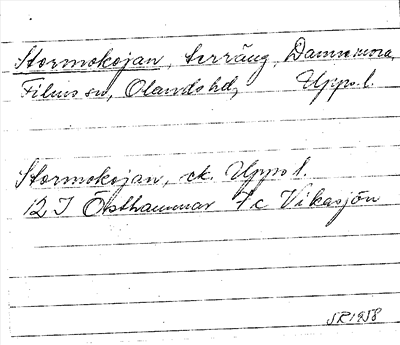 Stormokojan, terräng, Dannemora,
Films sn, Olands hd, Upps. l.
Stormokojan, ek. Upps l.
12 I Östhammar 7c Vikasjön
SR 1958